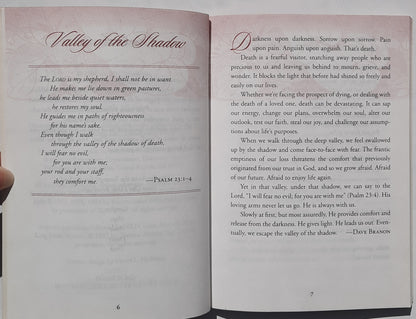 Valley of the Shadow
The LORD is my shepherd, I shall not be in want.
He makes me lie down in green pastures,
he leads me beside quiet waters,
he restores my soul.
He guides me in paths of righteousness
for his name's sake.
Even though I walk
through the valley of the shadow of death,
I will fear no evil,
for you are with me;
your rod and your staff,
they comfort me.
—PSALM 23:1–4
6
Darkness upon darkness. Sorrow upon sorrow. Pain
upon pain. Anguish upon anguish. That's death.
Death is a fearful visitor, snatching away people who are
precious to us and leaving us behind to mourn, grieve, and
wonder. It blocks the light that before had shined so freely and
easily on our lives.
Whether we're facing the prospect of dying, or dealing with
the death of a loved one, death can be devastating. It can sap
our energy, change our plans, overwhelm our soul, alter our
outlook, test our faith, steal our joy, and challenge our assump-
tions about life's purposes.
When we walk through the deep valley, we feel swallowed
up by the shadow and come face-to-face with fear. The frantic
emptiness of our loss threatens the comfort that previously
originated from our trust in God, and so we grow afraid. Afraid
of our future. Afraid to enjoy life again.
Yet in that valley, under that shadow, we can say to the
Lord, "I will fear no evil; for you are with me" (Psalm 23:4). His
loving arms never let us go. He is always with us.
Slowly at first, but most assuredly, He provides comfort and
release from the darkness. He gives light. He leads us out. Even-
tually, we escape the valley of the shadow. —DAVE BRANON
7